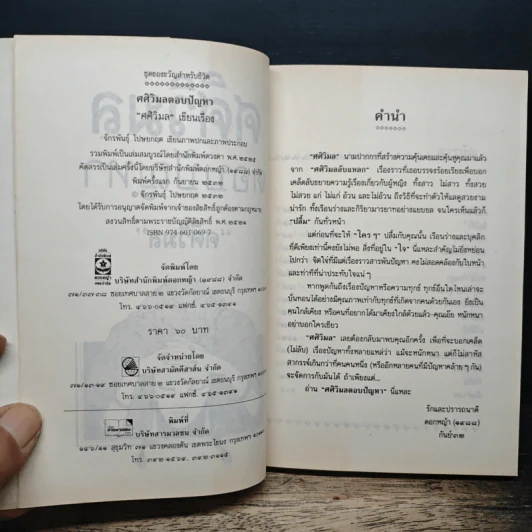 ชุดของขวัญสำหรับชีวิต
ศศิวิมลตอบปัญหา
"ศศิวิมล" เขียนเรื่อง
จักรพันธุ์ โปษยกฤต เขียนภาพปกและภาพประกอบ
รวมพิมพ์เป็นเล่มสมบูรณ์โดยสำนักพิมพ์ดวงตา พ.ศ. ๒๕๒๕
คัดสรรเป็นเล่มครั้งนี้โดยบริษัทสำนักพิมพ์ดอกหญ้า (๑๙๘๘) จำกัด
พิมพ์ครั้งแรก กันยายน ๒๕๓๒
จักรพันธุ์ โปษยกฤต ๒๕๓๒
โดยได้รับการอนุญาตพิมพ์จากเจ้าของลิขสิทธิ์ถูกต้องตามกฎหมาย
สงวนลิขสิทธิ์ตามพระราชบัญญัติลิขสิทธิ์ พ.ศ. ๒๕๒๑
ISBN 974-601-069-7
จัดพิมพ์โดย
บริษัทสำนักพิมพ์ดอกหญ้า (๑๙๘๘) จำกัด
๗๑/๓๗-๓๘ ซอยเทศบาลสาย ๒ แขวงวัดกัลยาณ์ เขตธนบุรี กรุงเทพฯ
โทร. ๔๖๖-๐๕๑๙ แฟกซ์. ๔๖๕-๑๓๔๑
ราคา ๖๐ บาท
จัดจำหน่ายโดย
บริษัทสามัคคีสาส์น จำกัด
ซอยเทศบาลสาย ๒ แขวงวัดกัลยาณ์ เขตธนบุรี กรุงเทพฯ
โทร. ๔๖๖-๐๕๑๙ แฟกซ์. ๔๖๕-๑๓๔๑
พิมพ์ที่
บริษัทสารมวลชน จำกัด
๑๔๖/๑๑ สุขุมวิท ๗๑ แขวงคลองตัน เขตพระโขนง กรุงเทพฯ
โทร. ๓๙๒-๑๕๖๙, ๓๙๒-๕๑๑๕
คำนำ
"ศศิวิมล" นามปากกาที่สร้างความคุ้นเคยและคุ้นหูคุณมาแล้ว
จาก "ศศิวิมลลับแพลก" เรื่องราวที่เธอบรรจงร้อยเรียงเพื่อบอก
เคล็ดลับขยายความรู้เรื่องเกี่ยวกับผู้หญิง ทั้งสาว ไม่สาว ทั้งสวย
ไม่สวย แก่ ไม่แก่ อ้วน และ ไม่อ้วน ถึงวิธีที่จะทำตัวให้แลดูสวยงาม
น่ารัก ทั้งเรือนร่างและกิริยามารยาทอย่างแยบยล จนใครเห็นแล้วก็
"ปลื้ม" กันทั่วหน้า
แต่ก่อนที่จะให้ "ใครๆ" ปลื้มกับคุณนั้น เรือนร่างและบุคลิก
ที่ดีเพียงเท่านี้คงยังไม่พอ สิ่งที่อยู่ใน "ใจ" นี่แหละสำคัญไม่ยิ่งหย่อน
ไปกว่า จิตใจที่มีแต่เรื่องราวสารพันปัญหา คงไม่สอดคล้องกับใบหน้า
และท่าทีที่น่าประทับใจแน่ ๆ
หากพูดกันถึงเรื่องปัญหาหรือความทุกข์ ทุกข์อื่นใดไหนเล่าจะ
บั่นทอนได้อย่างมีคุณภาพเท่ากับทุกข์ที่เกิดจากคนด้วยกันเอง ยิ่งเป็น
คนใกล้เคียง หรือคนที่อยากได้มาเคียงใกล้ด้วยแล้ว-คุณเอ๊ย หนักหนา
อย่าบอกใครเชียว
"ศศิวิมล" เลยต้องกลับมาพบคุณอีกครั้ง เพื่อที่จะบอกเคล็ด
(ไม่ลับ) เรื่องปัญหาทั้งหลายแหล่ว่า แม้จะหนักหนา แต่ก็ไม่สาหัส
สากรรจ์เกินกว่าที่คนคนหนึ่ง (หรืออีกหลายคนที่มีปัญหาคล้าย ๆ กัน)
จะจัดการกับมันได้ ถ้าเพียงแต่...
อ่าน "ศศิวิมลตอบปัญหา" นี่แหละ
รักและปรารถนาดี
ดอกหญ้า (๑๙๘๘)
กันย์๓๒